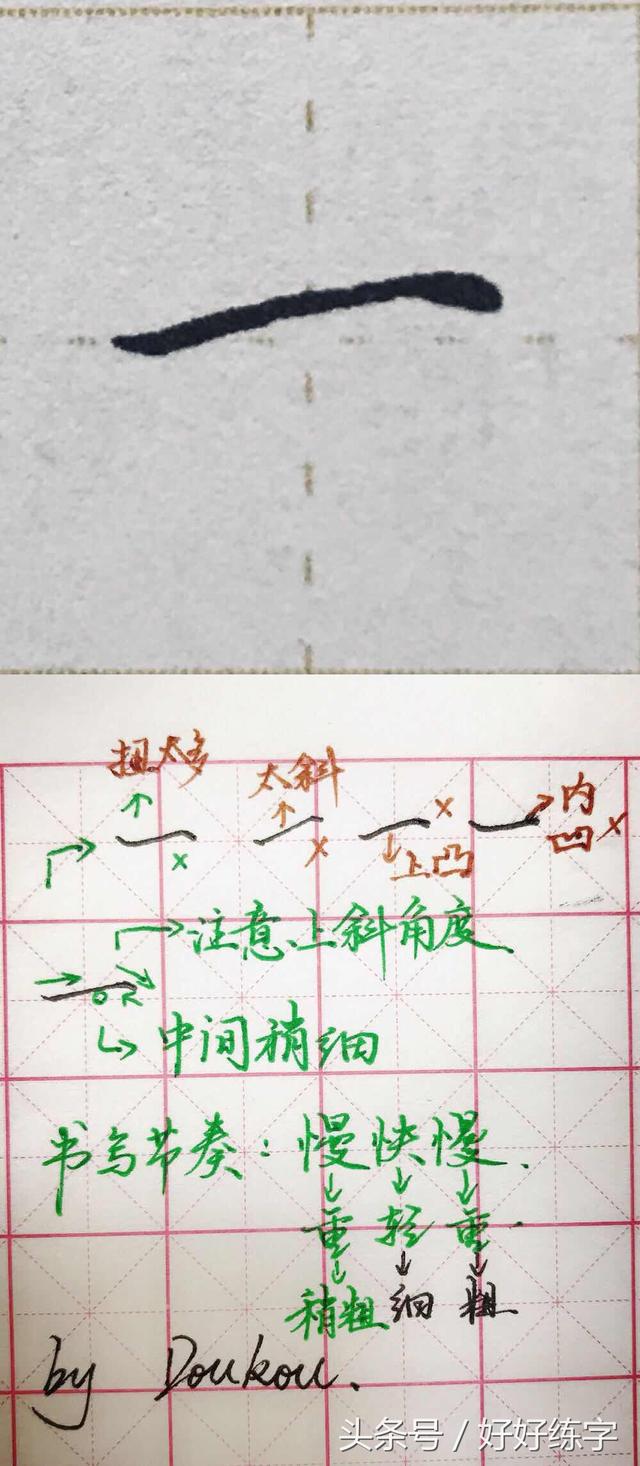 一
扭太多 太斜
x x 上凸 x 内凹 x
注意上斜角度.
中间稍细
书写节奏：慢快慢.
重 轻 重.
稍粗 细 粗
by Doukou.
头条号 / 好好练字